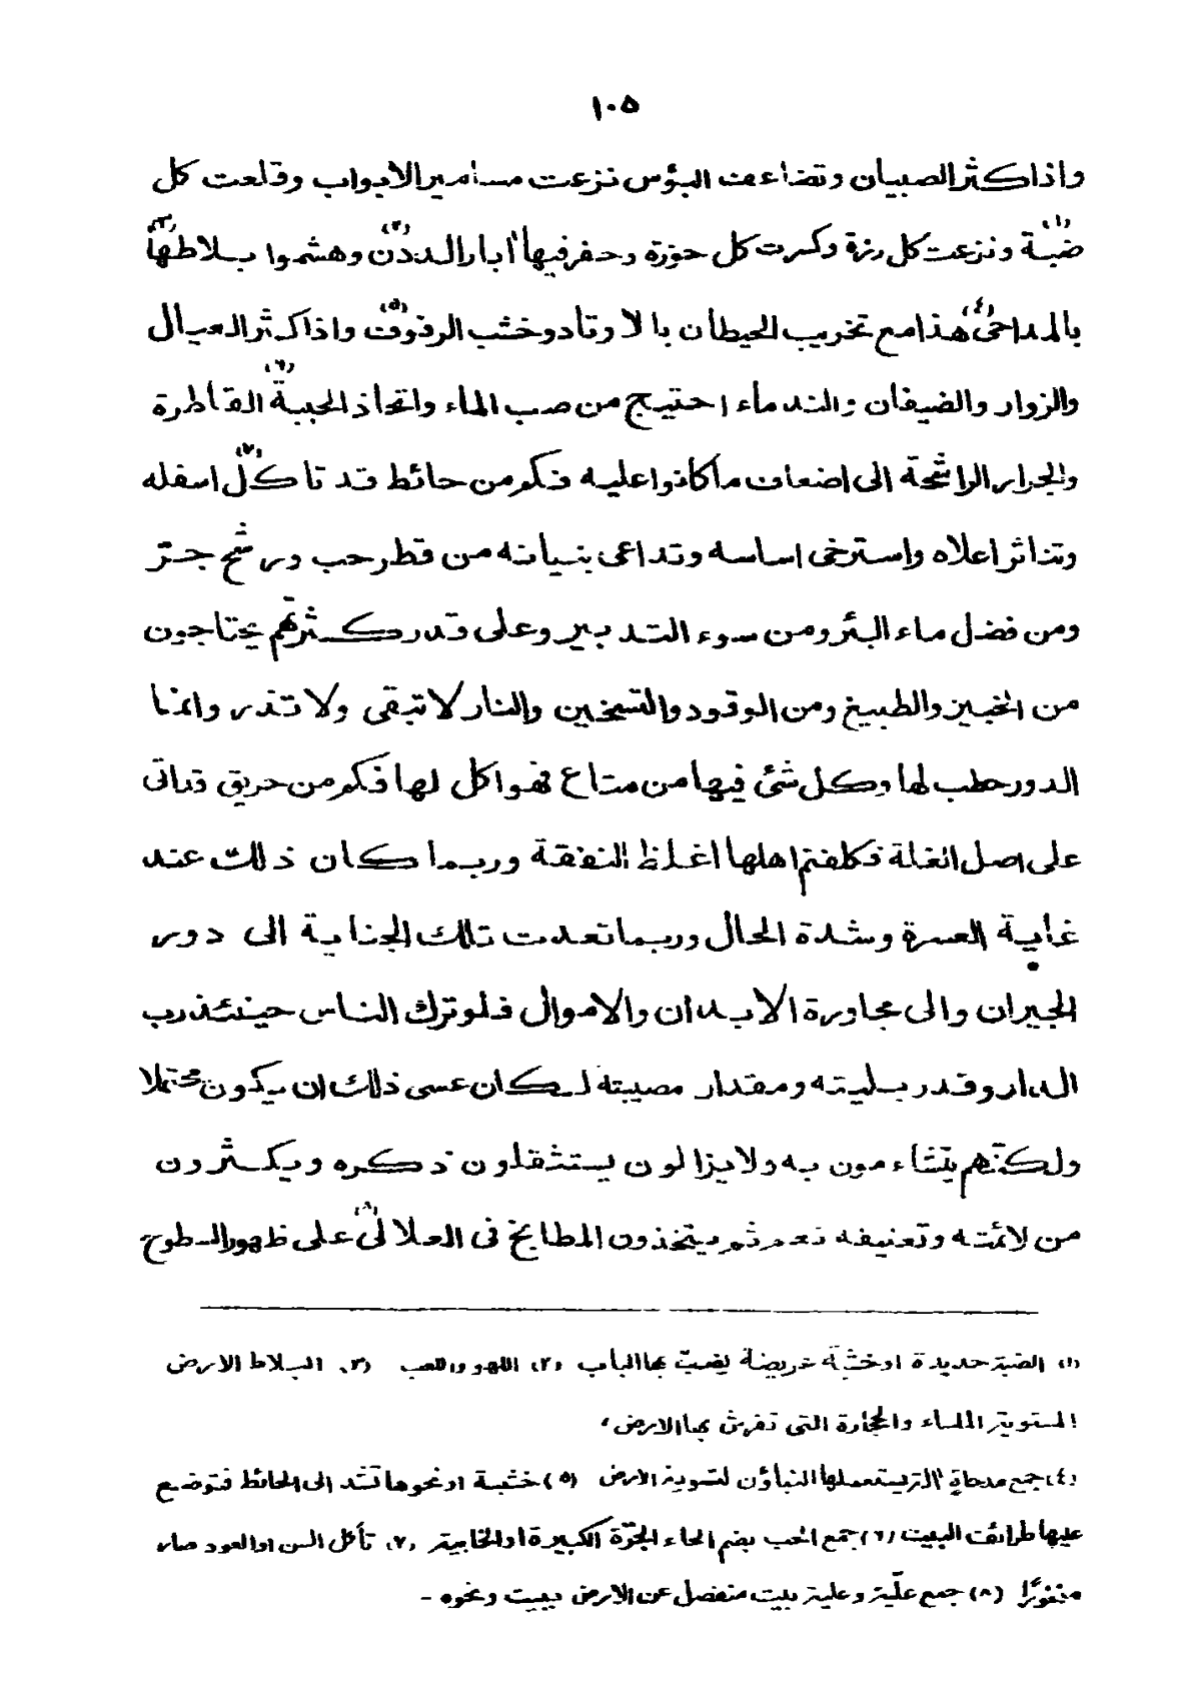 ١٠٥
واذا كثر الصبيان وتضاعف البؤس نزعت مسامير الابواب وقلعت كل
ضبّة(١) ونزعت كل رزة وكسرت كل حوزة وحفر فيها آبار الددن(٢) وهشموا بلاطها(٣)
بالمداحى(٤) هذا مع تخريب الحيطان بالاوتاد وخشب الرفوف(٥) واذا كثر العيال
والزوار والضيفان والندماء احتيج من صب الماء واتخاذ الحببة(٦) القاطرة
والجرار الراشحة الى اضعاف ما كانوا عليه فكم من حائط قد تاكّل(٧) اسفله
وتناثر اعلاه واسترخى اساسه وتداعى بنيانه من قطر حب ورشح جرّ
ومن فضل ماء البئر ومن سوء التدبير وعلى قدر كثرتهم يحتاجون
من الخبيز والطبيخ ومن الوقود والتسخين والنار لا تبقى ولا تذر وانما
الدور حطب لها وكل شئ فيها من متاع فهو اكل لها فكم من حريق قد اتى
على اصل الغلة فكلفتم اهلها اغلظ النفقة وربما كان ذلك عند
غاية العسرة وشدة الحال وربما تعدت تلك الجناية الى دور
الجيران والى مجاورة الابدان والاموال فلو ترك الناس حينئذ رب
الدار وقدر بليته ومقدار مصيبته لكان عسى ذلك ان يكون محتملا
ولكنّهم يتشاءمون به ولا يزالون يستثقلون ذكره ويكثرون
من لائمته وتعنيفه نعم ثم يتخذون المطابخ فى العلالىّ(٨) على ظهور السطوح
(١) الضبة حديدة او خشبة عريضة يضبّ بها الباب (٢) اللهو واللعب (٣) البلاط الارض
المستوية الملساء والحجارة التى تفرش بها الارض،
(٤) جمع مدحاة التى يستعملها البناؤن لتسوية الارض (٥) خشبة او نحوها تشد الى الحائط فتوضع
عليها طرائف البيت (٦) جمع الحب بضم الحاء الجرّة الكبيرة او الخابية (٧) تأكل السن او العود صار
منخورًا (٨) جمع علّية وعلية بيت منفصل عن الارض ببيت ونحوه -